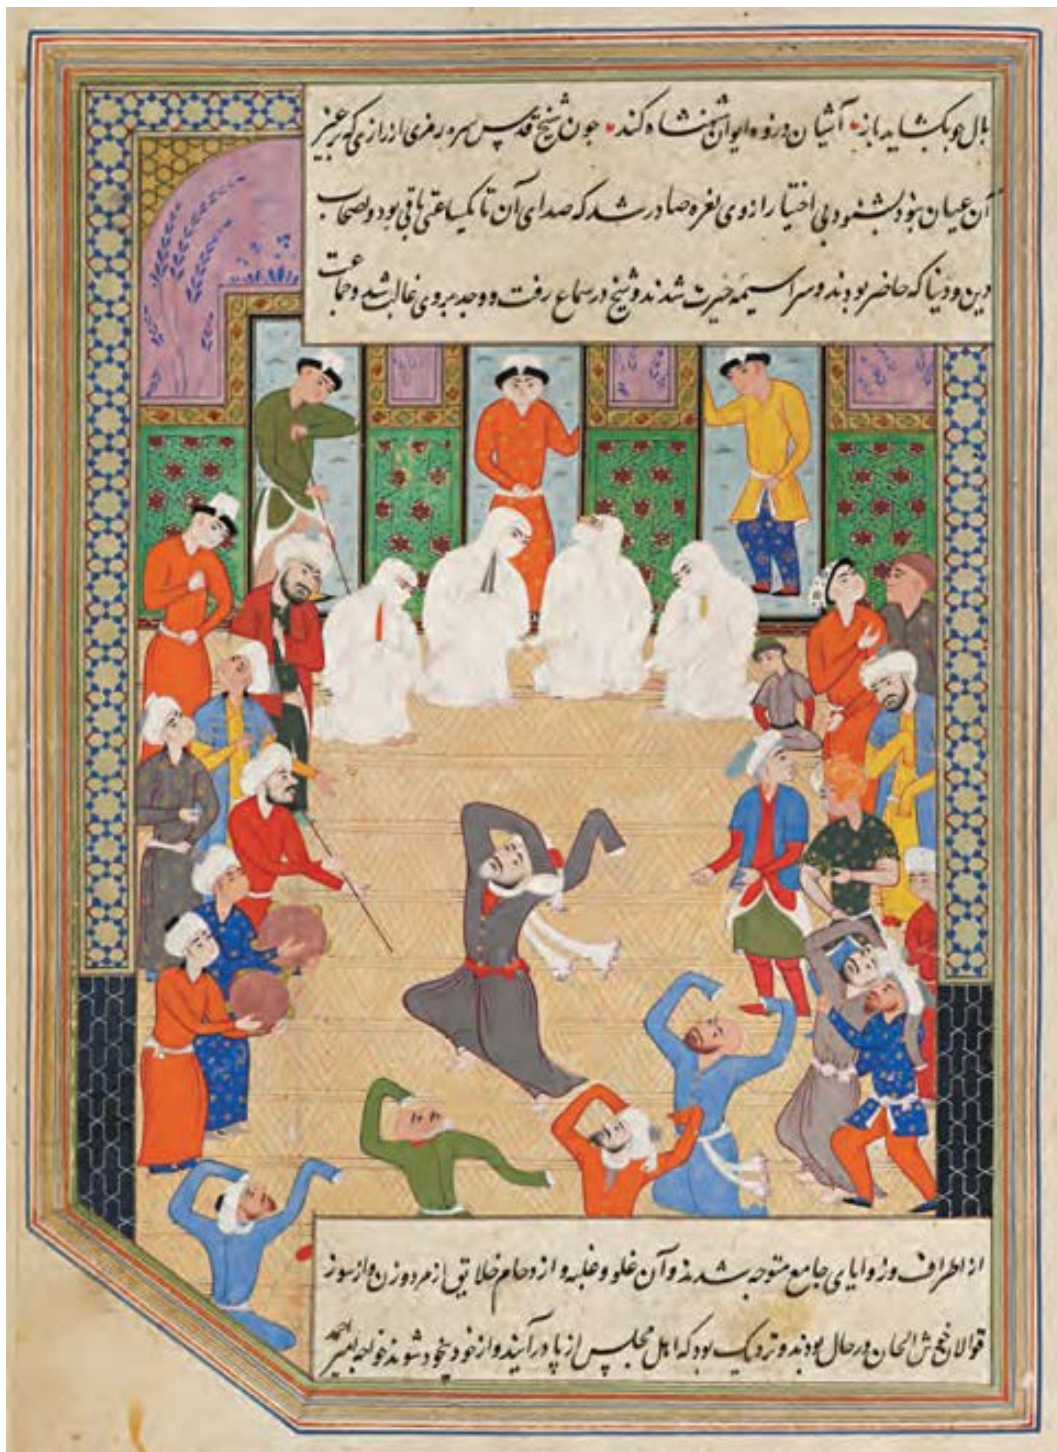 بال جو بکشاید باز آشیان در زه ایوان شهنشاه کند جون شیخ قدس سره رمزی از رازی که بر عزیز
آن عیان بود بشنود بی اختیار از وی نعره صادر شد که صدای آن تا یکساعتی باقی بود و اصحاب
دین و دنیا که حاضر بودند و سراسیمه حیرت شدند و شیخ در سماع رفت و وجد بر وی غالب شد و جماعت
از اطراف و زوایای جامع متوجه شدند و آن غلو و غلبه و ازدحام خلایق از مرد و زن و از سوز
قوالان خوش الحان در حال بودند و نزدیک بود که اهل مجلس از پا در آیند و از خود بیخود شوند خواجه امیر احمد